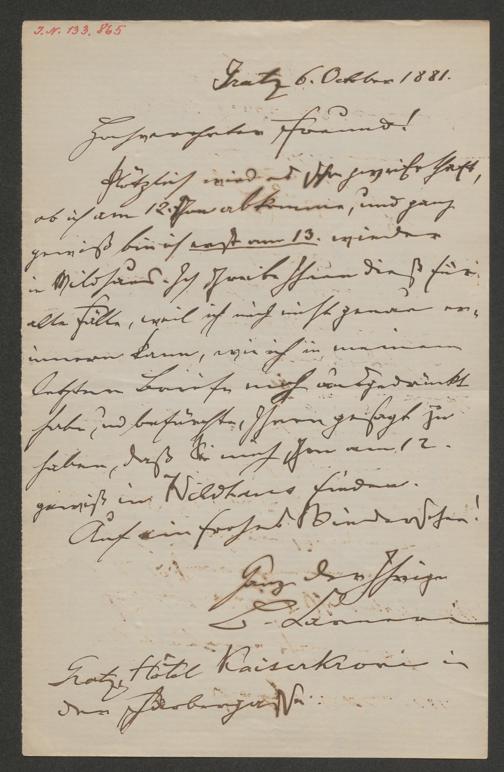 J.N. 133.865
Gratz 6. October 1881.
Hochverehrter Freund!
Plötzlich wird es sehr zweifelhaft,
ob ich am 12. schon abkomme, und ganz
gewiß bin ich erst am 13. wieder
in Wildhaus. Ich schreibe Ihnen dieß für
alle Fälle, weil ich mich nicht genau er-
innern kann, wie ich in meinem
letzten Briefe mich ausgedrückt
habe, und befürchte, Ihnen gesagt zu
haben, daß Sie mich schon am 12.
gewiß in Wildhaus finden.
Auf ein frohes Wiedersehen!
Ganz der Ihrige
B. Carneri
Gratz, Hôtel Kaiserkrone in
der Färbergasse.